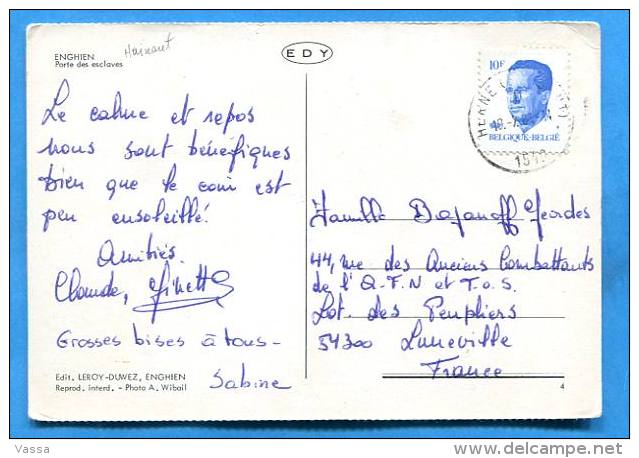 ENGHIEN
Porte des esclaves
Hainaut
EDY
10F
BELGIQUE-BELGIË
HERNE
Le calme et repos
nous sont bénéfiques
bien que le coin est
peu ensoleillé.
Amitiés.
Claude, Ginette
Grosses bises à tous -
Sabine
Edit. LEROY-DUWEZ, ENGHIEN
Reprod. interd. - Photo A. Wibail
Famille
44, rue des Anciens Combattants
de l' A.F.N et T.O.S.
Lot. des Peupliers
54300 Luneville
France
4
Vassa
www.delcampe.net